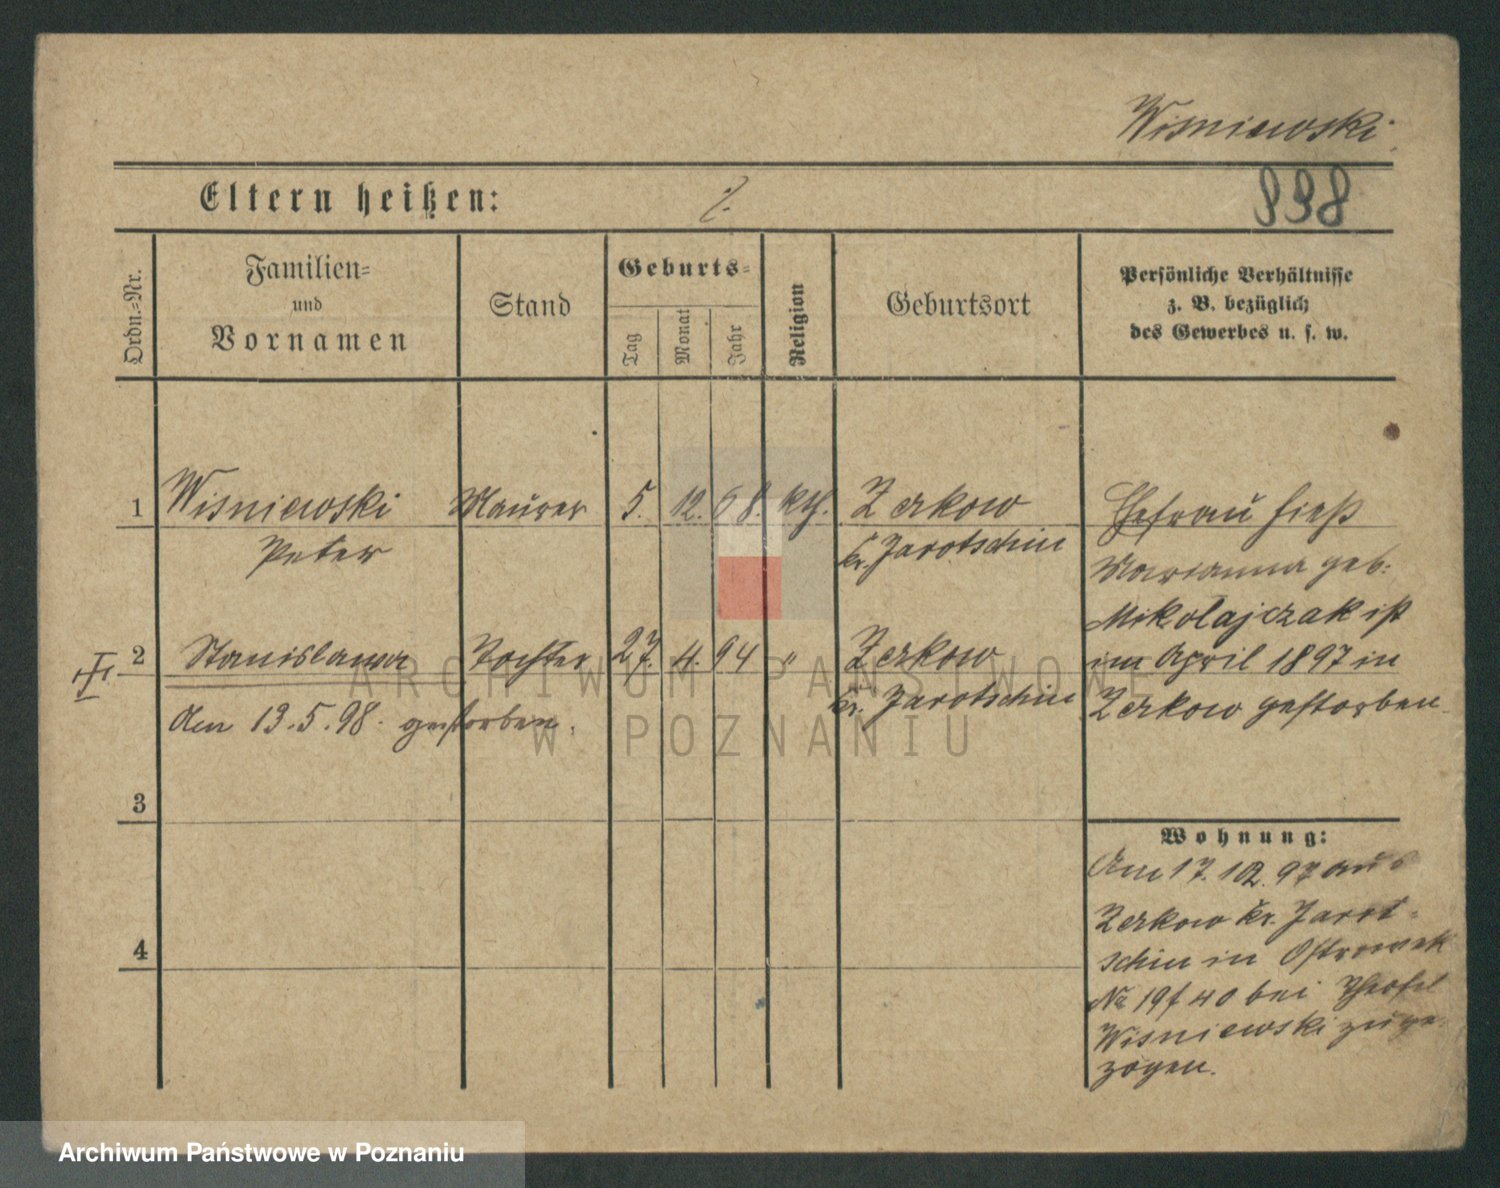 Wisniewski
Eltern heißen: ·/.
898
Ordn.-Nr.
Familien-
und
Vornamen
Stand
Geburts-
Tag
Monat
Jahr
Religion
Geburtsort
Persönliche Verhältnisse
z. B. bezüglich
des Gewerbes u. s. w.
1 Wisniewski Maurer 5. 12. 68. kth. Zerkow
Peter kr. Jarotschin
Ehefrau hieß
Marianna geb:
Mikolajczak ist
im April 1897 in
Zerkow gestorben.
2 Stanislawa Tochter 27. 4. 94 " Zerkow
kr. Jarotschin
Am 13.5.98. gestorben.
3
4
Wohnung:
Am 17.12.97 aus
Zerkow kr. Jarot-
schin in Ostrowek
Nr 19/40 bei
Wisniewski zuge-
zogen.
ARCHIWUM PAŃSTWOWE
W POZNANIU
Archiwum Państwowe w Poznaniu